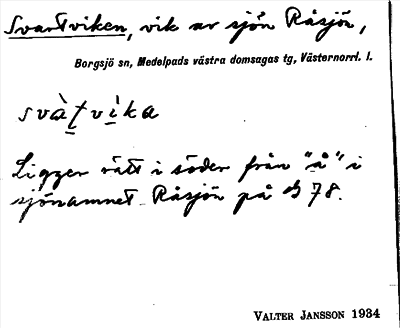 Svartviken, vik av sjön Råsjön,
Borgsjö sn, Medelpads västra domsagas tg, Västernorrl. l.
svàt̠vi̠̍ka
Ligger rätt i söder från "å" i
sjönamnet Råsjön på B 78.
VALTER JANSSON 1934